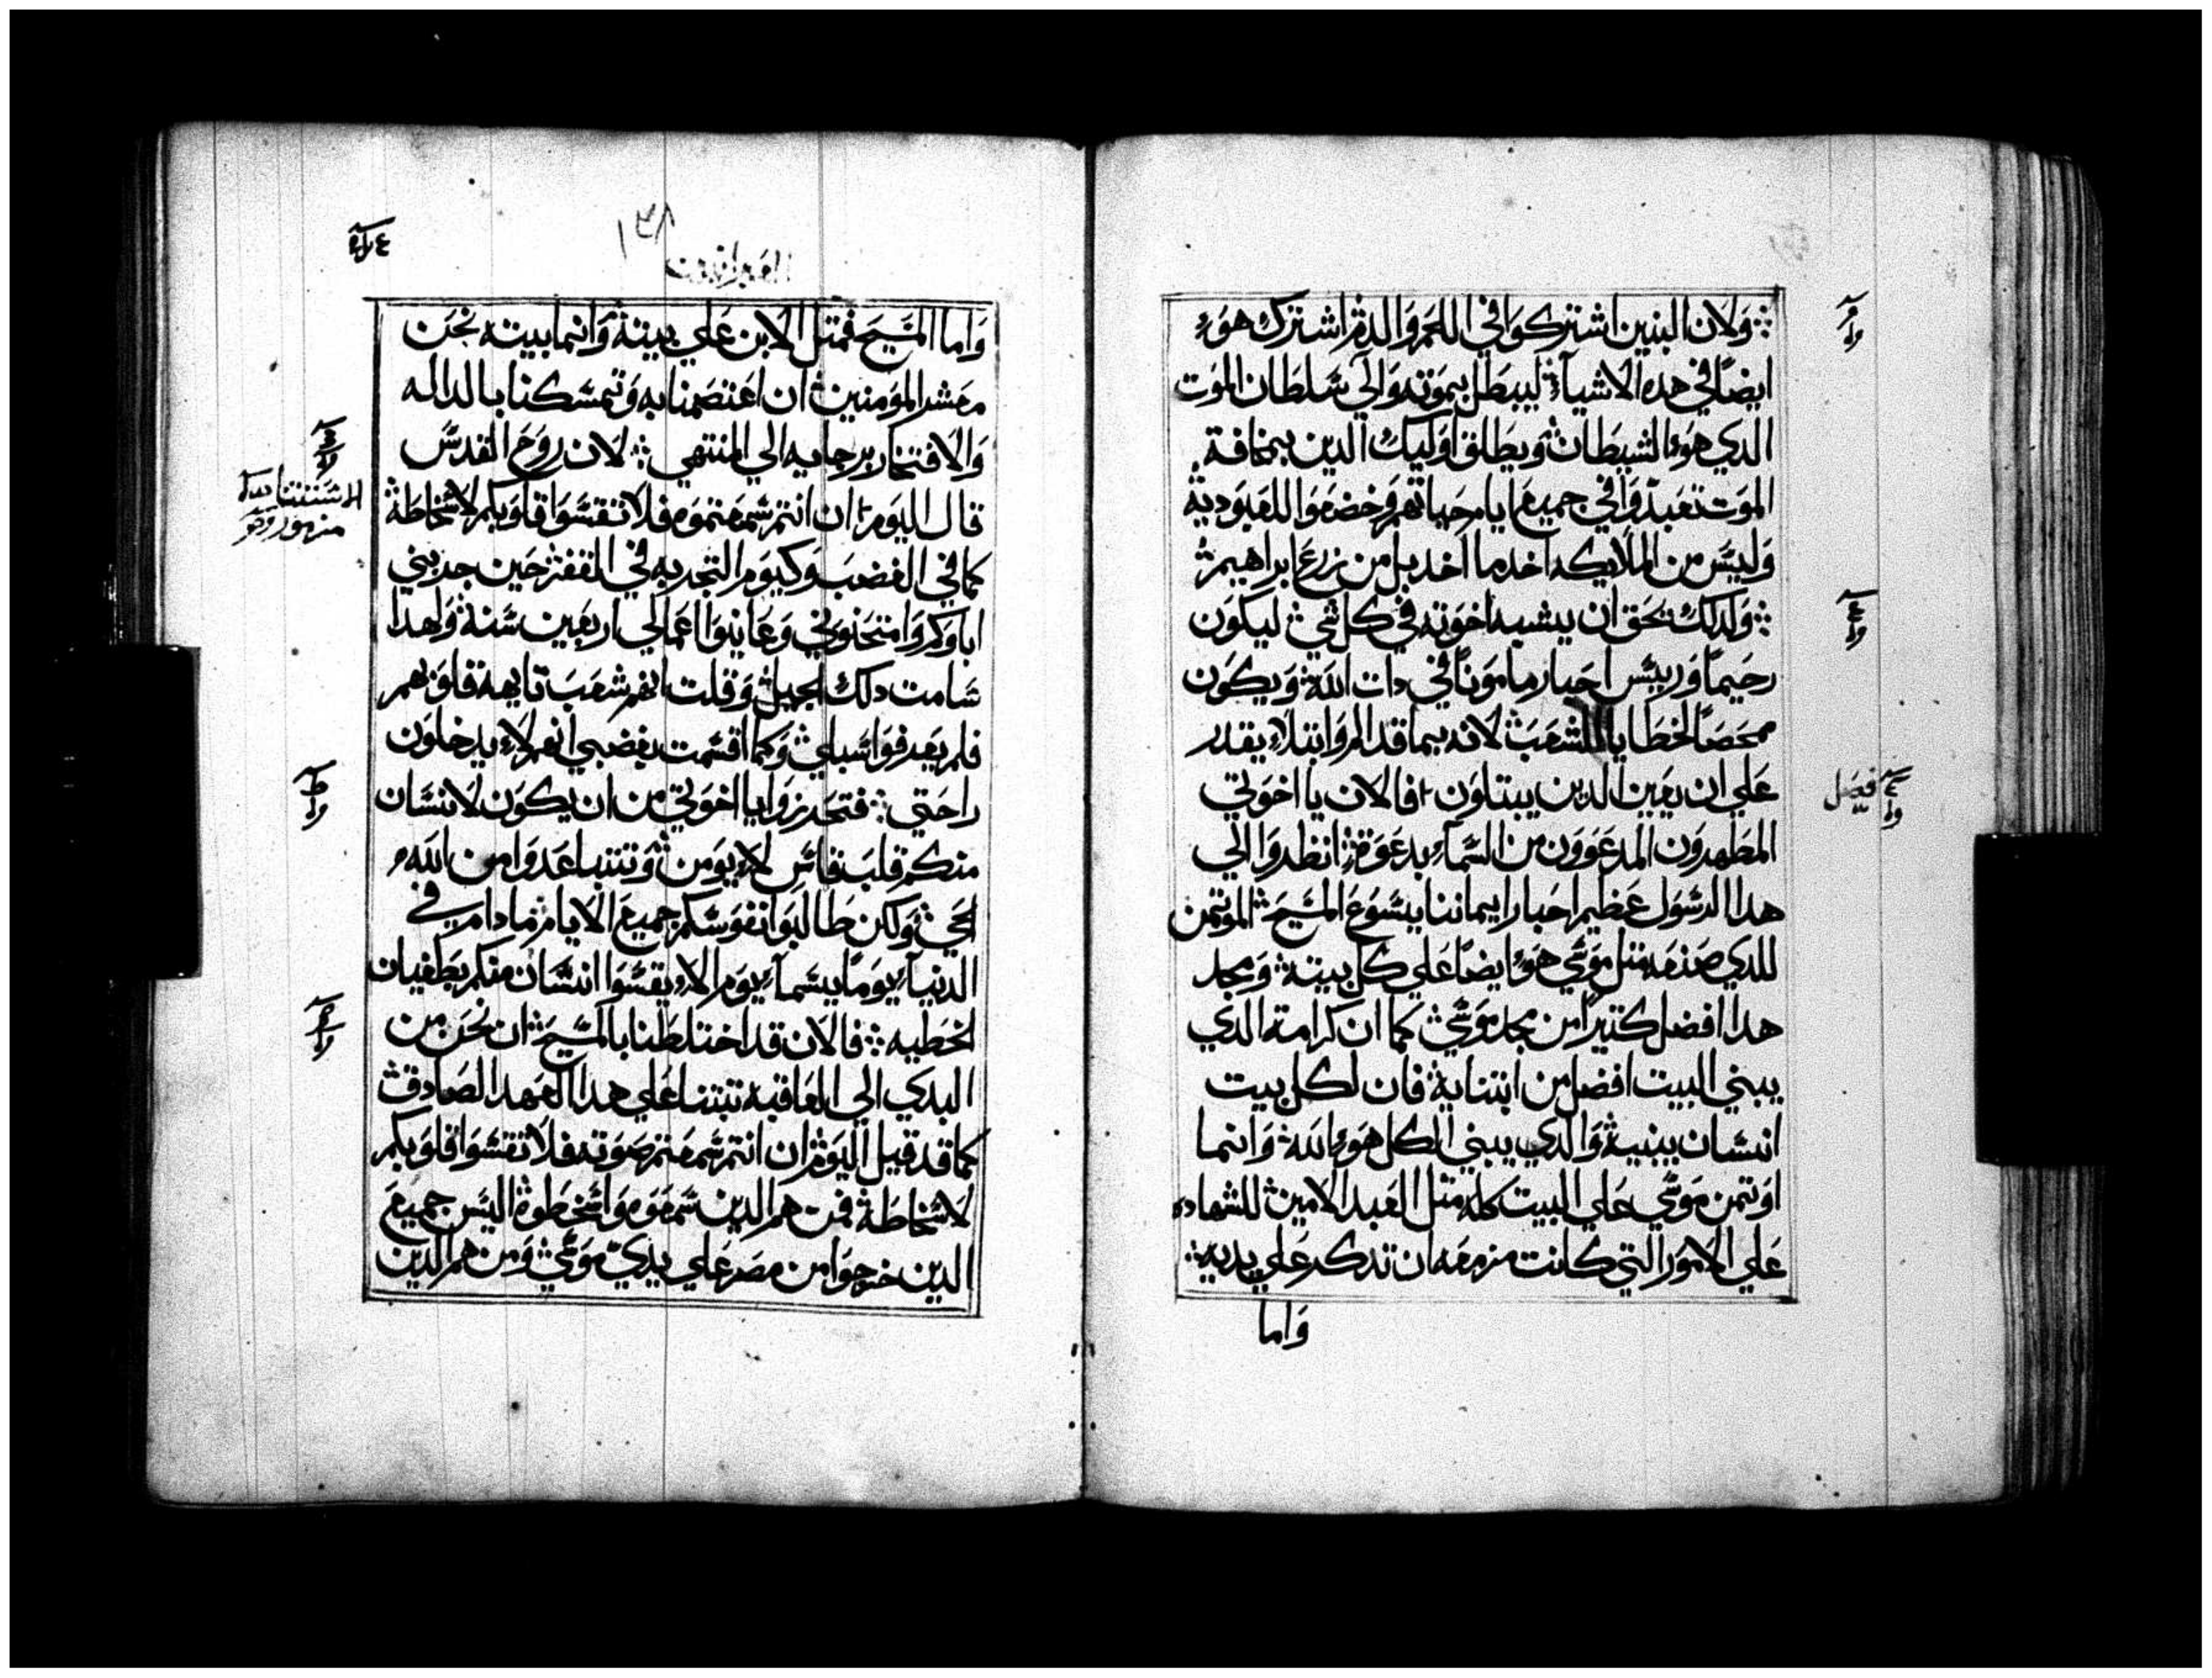 ولان البنين اشتركوا في اللحم والدم اشترك هوء
ايضًا في هده الاشيآء ليبطل بموته والي سلطان الموت
الدي هوء الشيطان ويطلق اوليك الدين بمخافة
الموت تعبدوا في جميع ايام حياتهم وخضعوا للعبودية
وليس من الملايكه اخد ما اخد بل من زرع ابراهيم
ولدلك نحق ان يشبه اخوته في كل شي ليكون
رحيمًا وريس احبار مامونًا في دات الله ويكون
ممحصًا لخطايا الشعب لانه بما قد الم وابتلاء يقدر
علي ان يعين الدين يبتلون فالان يا اخوتي
المطهرون المدعوون من السمآء بدعوة انظروا الي
هدا الرسول عظيم احبار ايماننا يسوع المسيح الموتمن
للدي صنعه متل موسي هوء ايضًا علي كل بيته ومجد
هدا افضل كتيرًا من مجد موسي كما ان كرامة الدي
يبني البيت افضل من ابتنايه فان لكل بيت
انسان يبنيه والدي يبني الكل هوء الله وانما
اوتمن موسي علي البيت كله متل العبد الامين للشهاده
علي الامور التي كانت مزمعه ان تدكر علي يديه
واما
١٣٨
العبرانيين
واما المسيح فمتل الابن علي بيته وانما بيته نحن
معشر المومنين ان اعتصمنا به وتمسكنا بالداله
والافتخار برجايه الي المنتهي لان روح القدس
قال اليوم ان انتم سمعتموه فلا تقسوا قلوبكم لاسخاطه
كما في الغضب وكيوم التجربه في القفر حين جربني
اباوكم وامتحنوني وعاينوا اعمالي اربعين سنة ولهدا
سامت دلك الجيل وقلت انهم شعب تايهة قلوبهم
فلم يعرفوا سبلي وكما اقسمت بغضبي انهم لاء يدخلون
راحتي فتحدروا يا اخوتي من ان يكون لانسان
منكم قلب قاس لاء يومن وتتباعدوا من الله
الحي ولكن طالبوا نفوسكم جميع الايام ما دام في
الدنيآء يومًا يسمآء يوم الاء يقسوا انسان منكم بطغيان
الخطيه فالان قد اختلطنا بالمسيح ان نحن من
البدي الي العاقبه تبتنا علي هدا العهد الصادق
كما قد قيل اليوم ان انتم سمعتم صوته فلا تقسوا قلوبكم
لاسخاطه فمن هم الدين سمعوه واسخطوه اليس جميع
الدين خرجوا من مصر علي يدي موسي ومن هم الدين
فصل